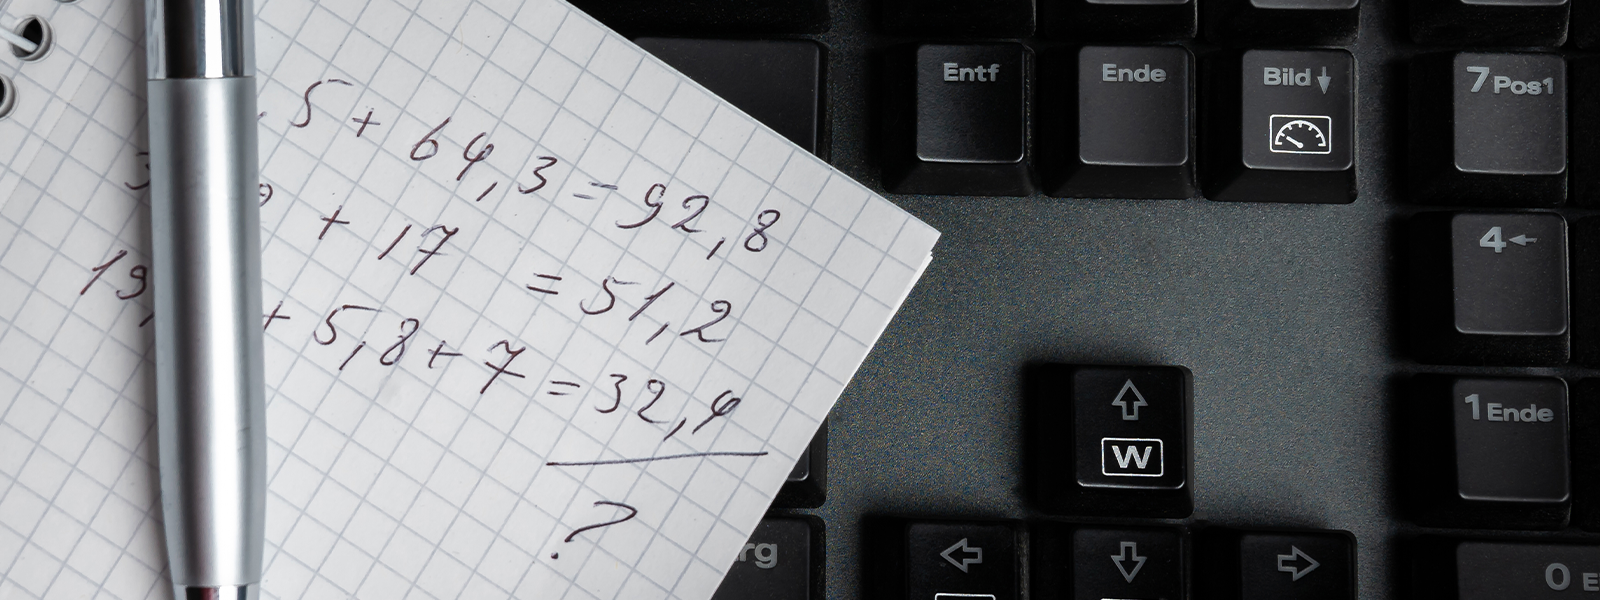 ,5 + 64,3 = 92,8
+ 17 = 51,2
19, + 5,8 + 7 = 32,4
?
Entf
Ende
Bild ↓
7 Pos1
4 ←
↑
W
1 Ende
rg
←
↓
→
0 E